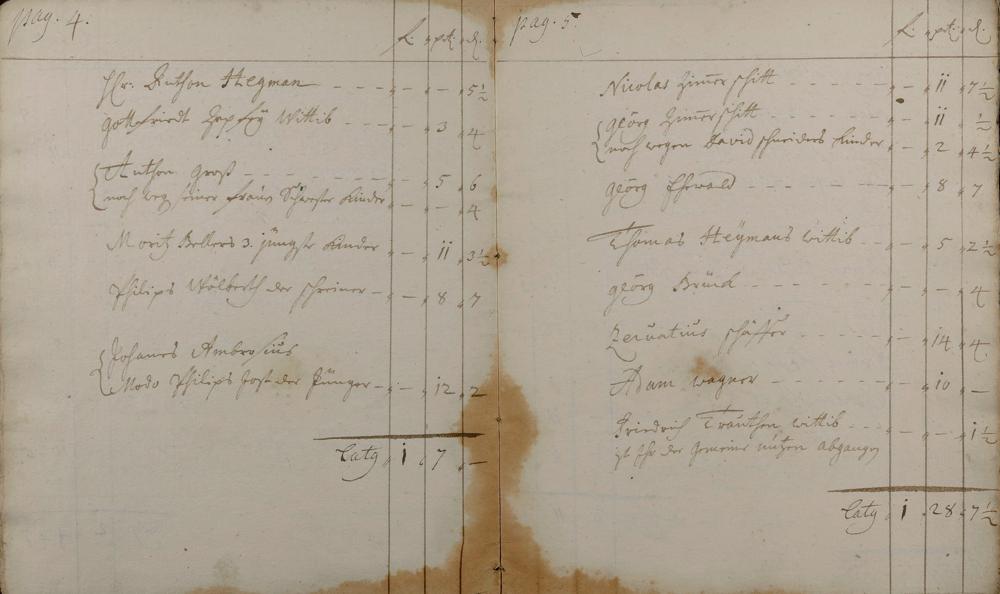 pag. 4.
f. xr. d.
Hr. Anthon Hegman - - - - - 5½
Gottfriedt Wittib - - - 3 4
Anthon Groß - - - - 5 6
noch weg. seiner frauen Schwester Kinder - - 4
Moritz Bellers 3. jüngste Kinder - ii 3½
Philips Wölberth der schreiner - - 8 7
Johanes Ambrosius
Modo Philips Jost der Jünger - - 12 2
Latq i 7 -
pag. 5.
f. xr. d.
Nicolas Zimerschitt - - - - ii 7½
Georg Zimerschitt - - - - ii ½
noch wegen David schneiders Kinder - 2 4½
Georg Ehewald - - - - - 8 7
Thomas Heÿmans wittib - - - 5 2½
georg Brück - - - - - - 4
Zervatius schäffer - - - - 14 4
Adam wagner - - - - 10 -
Friedrich Trauthen wittib - - - - 1½
ist der gemeine nutzen abgangen
Latq i 28 7½